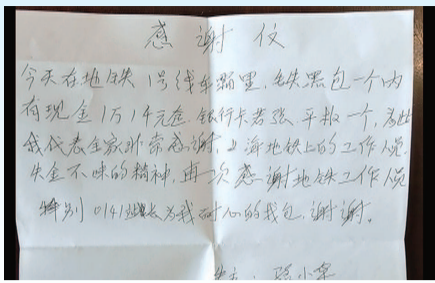 感谢仪
今天在地铁1号线车厢里,缺黑包一个内
有现金1万1千元金.银行卡若张 平板一个,为此
我代表全家非常感谢,上海地铁上的工作人员,
失金不昧的精神,再次感谢地铁工作人员
特别0141站长为我耐心的钱包,谢谢。
小